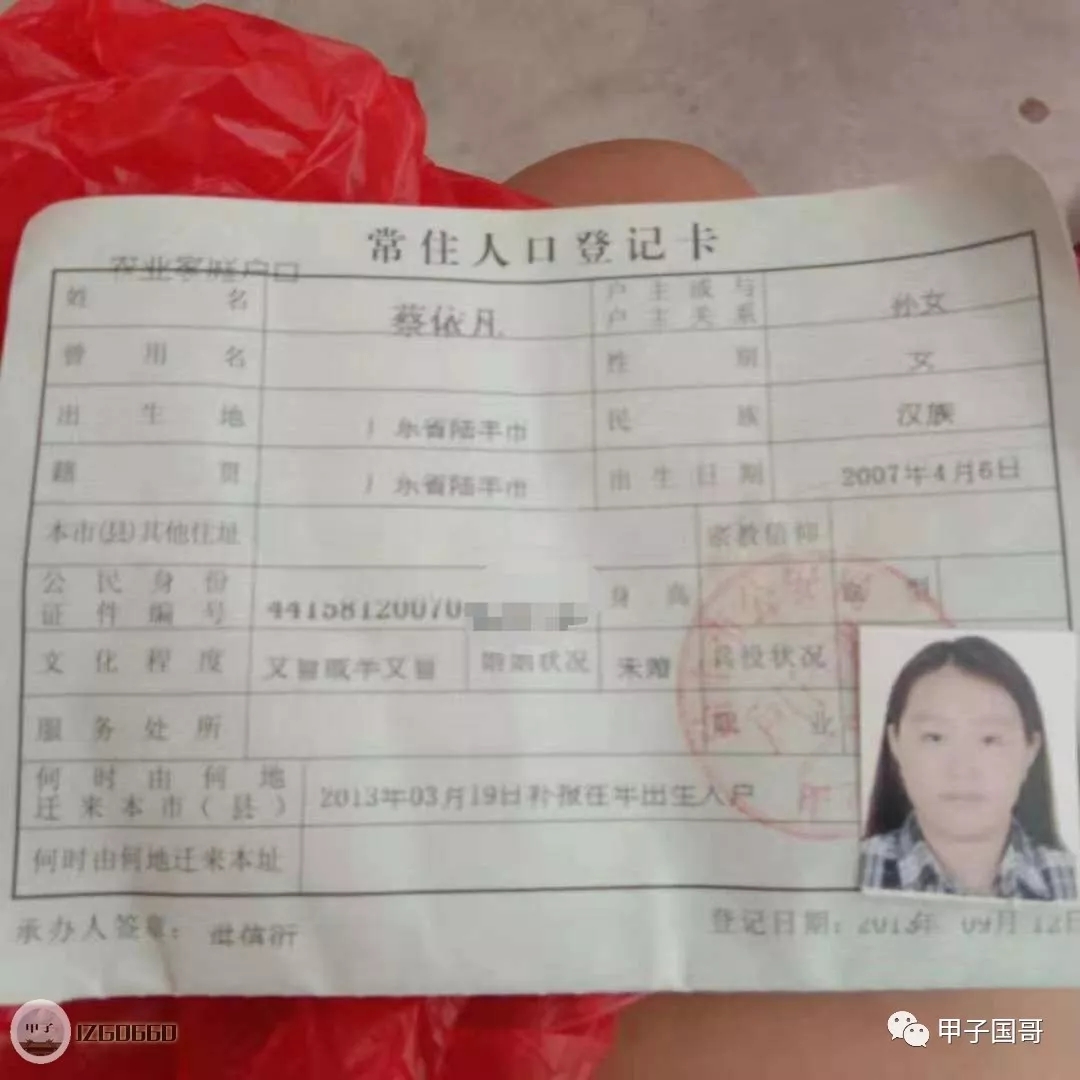 常住人口登记卡
农业家庭户口
姓名 蔡依凡 户主或与户主关系 孙女
曾用名 性别 女
出生地 广东省陆丰市 民族 汉族
籍贯 广东省陆丰市 出生日期 2007年4月6日
本市(县)其他住址 宗教信仰
公民身份证件编号 44158120070 身高 血型
文化程度 文盲或半文盲 婚姻状况 未婚 兵役状况
服务处所 职业
何时由何地迁来本市(县) 2013年03月19日补报往年出生入户
何时由何地迁来本址
承办人签章: 登记日期: 2013年 09月 12日
甲子 JZ60660
甲子国哥